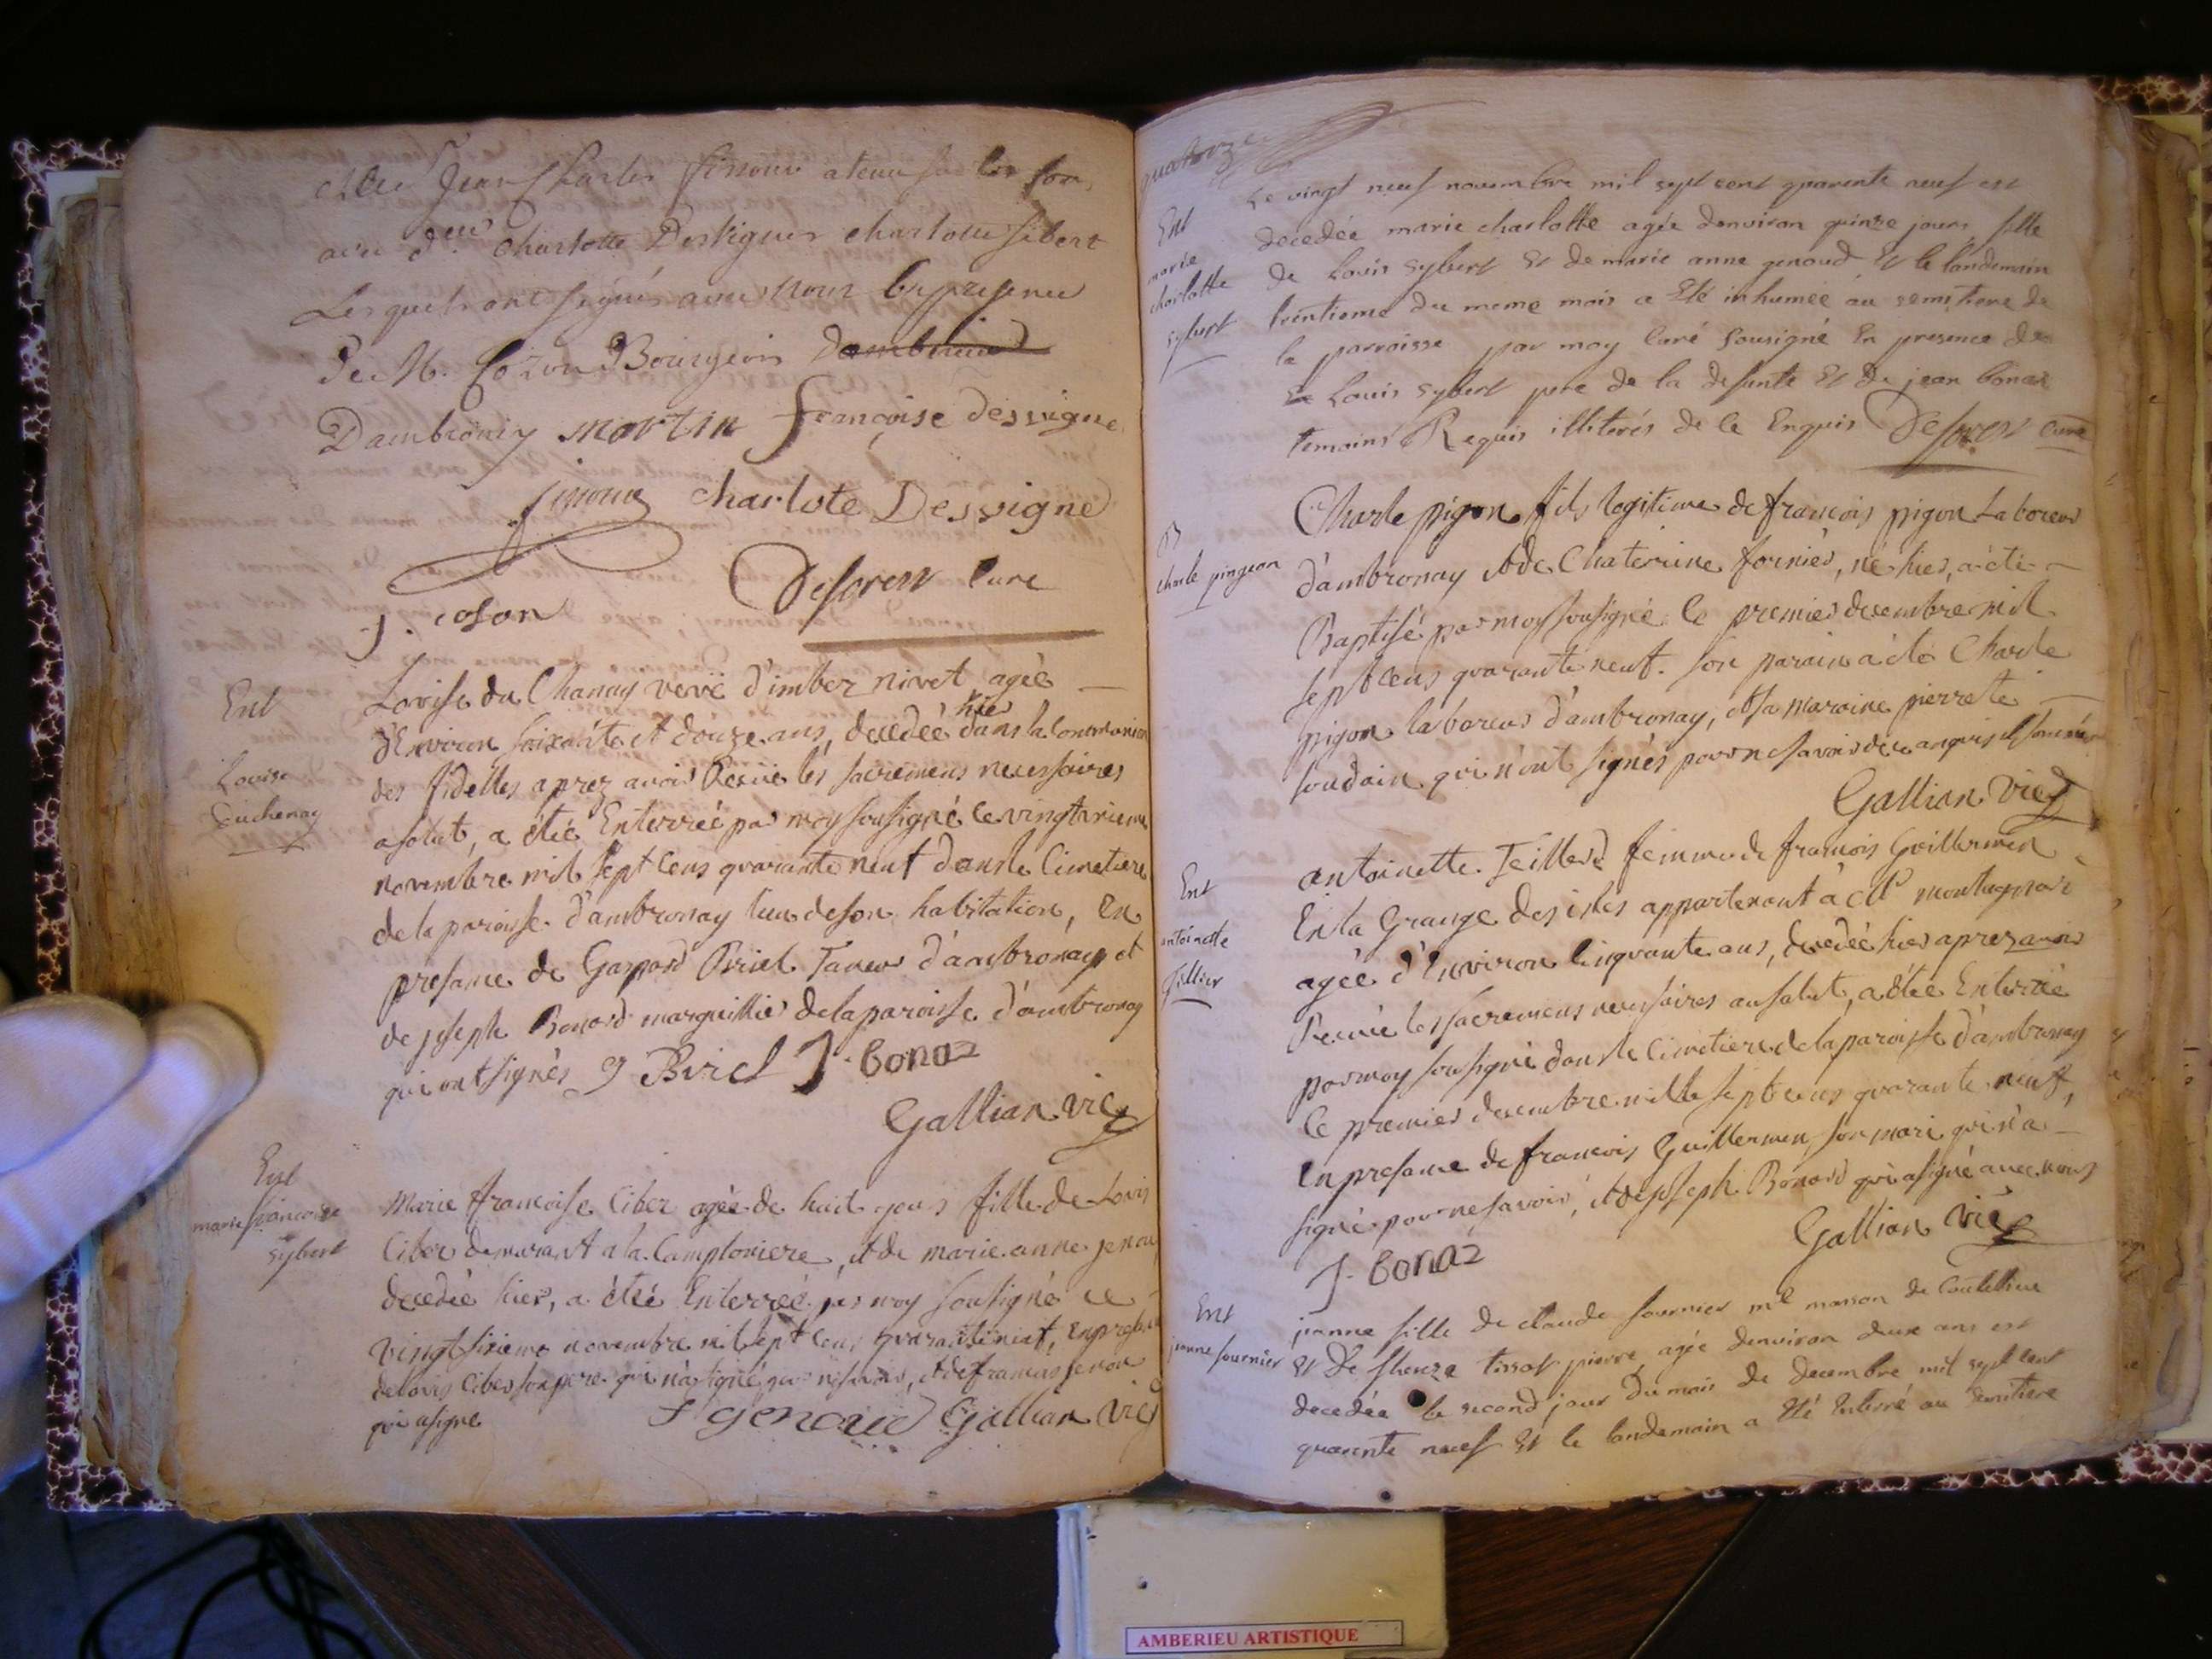 Jean Charles simoux a tenu sur les fon,
avec d.lle Charlotte Dessignes charlotte sibert
Lesquels ont signés avec nous En presence
de M. Cozon Bourgeois
Dambronay martin françoise dessigne
simoux charlote Dessigne
Desforest Curé
J. coson
Ent
Louise
Duchenay
Lovise du Chanay vevë d'imber nivet agéé
d'Environ soixante et douze ans, decedéé hier dans la Communion
des fidelles aprez avoir Recüe les sacremens necessaires
a salut, a étéé Enterréé par moy sousigné ce
novembre mil sept cens quarante neuf dans le Cimetiere
de la paroisse d'ambronay lieu de son habitation, En
presance de Gaspard Briel Taneur d'ambronay et
de joseph Bonard marguillier de la paroisse d'ambronay
qui ont signés g Biriel J. bonaz
Gallian vic
Ent
marie francoise
sybert
Marie francoise Ciber agéé de huit jours fille de Lovis
Ciber demurant a la Camploniere, et de marie anne jenou
decedéé hier, a étéé Enterréé par moy sousigné ce
vingt sixieme novembre mil sept cens quarante neuf, En presance
de lovis Ciber son pere qui n'a signé pour ne savoir, et de francois jenou
qui a signe f genoud Gallian vic
quatorze
Ent
marie
charlotte
sybert
Le vingt neuf novembre mil sept cent quarente neuf est
decedéé marie charlotte agéé denviron quinze jours fille
de Louis sybert Et de marie anne genoud Et le landemain
trentieme du meme mois a Eté inhumée au semitiere de
la parroisse par moy Curé sousigné En presence de
Louis sybert pere de la defunte Et de jean bonaz
temoins Requis illiterés de ce Enquis Desforest curé
B
charle pingeon
Charle pigon fils legitime de francois pigon Laboreur
d'ambronay et de Chaterine fornier, né hier, a été
Baptisé par moy sousigné le premier decembre mil
sept cens quarante neuf. son parain a été Charle
pigon laboreur d'ambronay, et sa maraine pierrete
soudain qui n'ont signés pour ne savoir de ce anquis et sommés
Gallian vic
Ent
antoinette
Tillier
antoinette Teillier femme de francois Guillermin
En la Grange des isles appartenant à Mr
agéé d'Environ cinquante ans, decedéé hier aprez avoir
Recüe les sacremens necessaires au salut, a étéé Enterréé
par moy sousigné dans le Cimetiere de la paroisse d'ambronay
le premier decembre mille sept cens quarante neuf,
En presance de francois Guillermin, son mari qui n'a
signé pour ne savoir, et de joseph Bonard qui a signé avec nous
J. bonaz Gallian vic
Ent
janne fournier
janne fille de claude fournier me masson de
Et De tissot pierre agéé denviron deux ans est
decedéé le second jour Du mois de decembre mil sept cent
quarente neuf Et le landemain a Eté Enterré au semitiere
AMBERIEU ARTISTIQUE